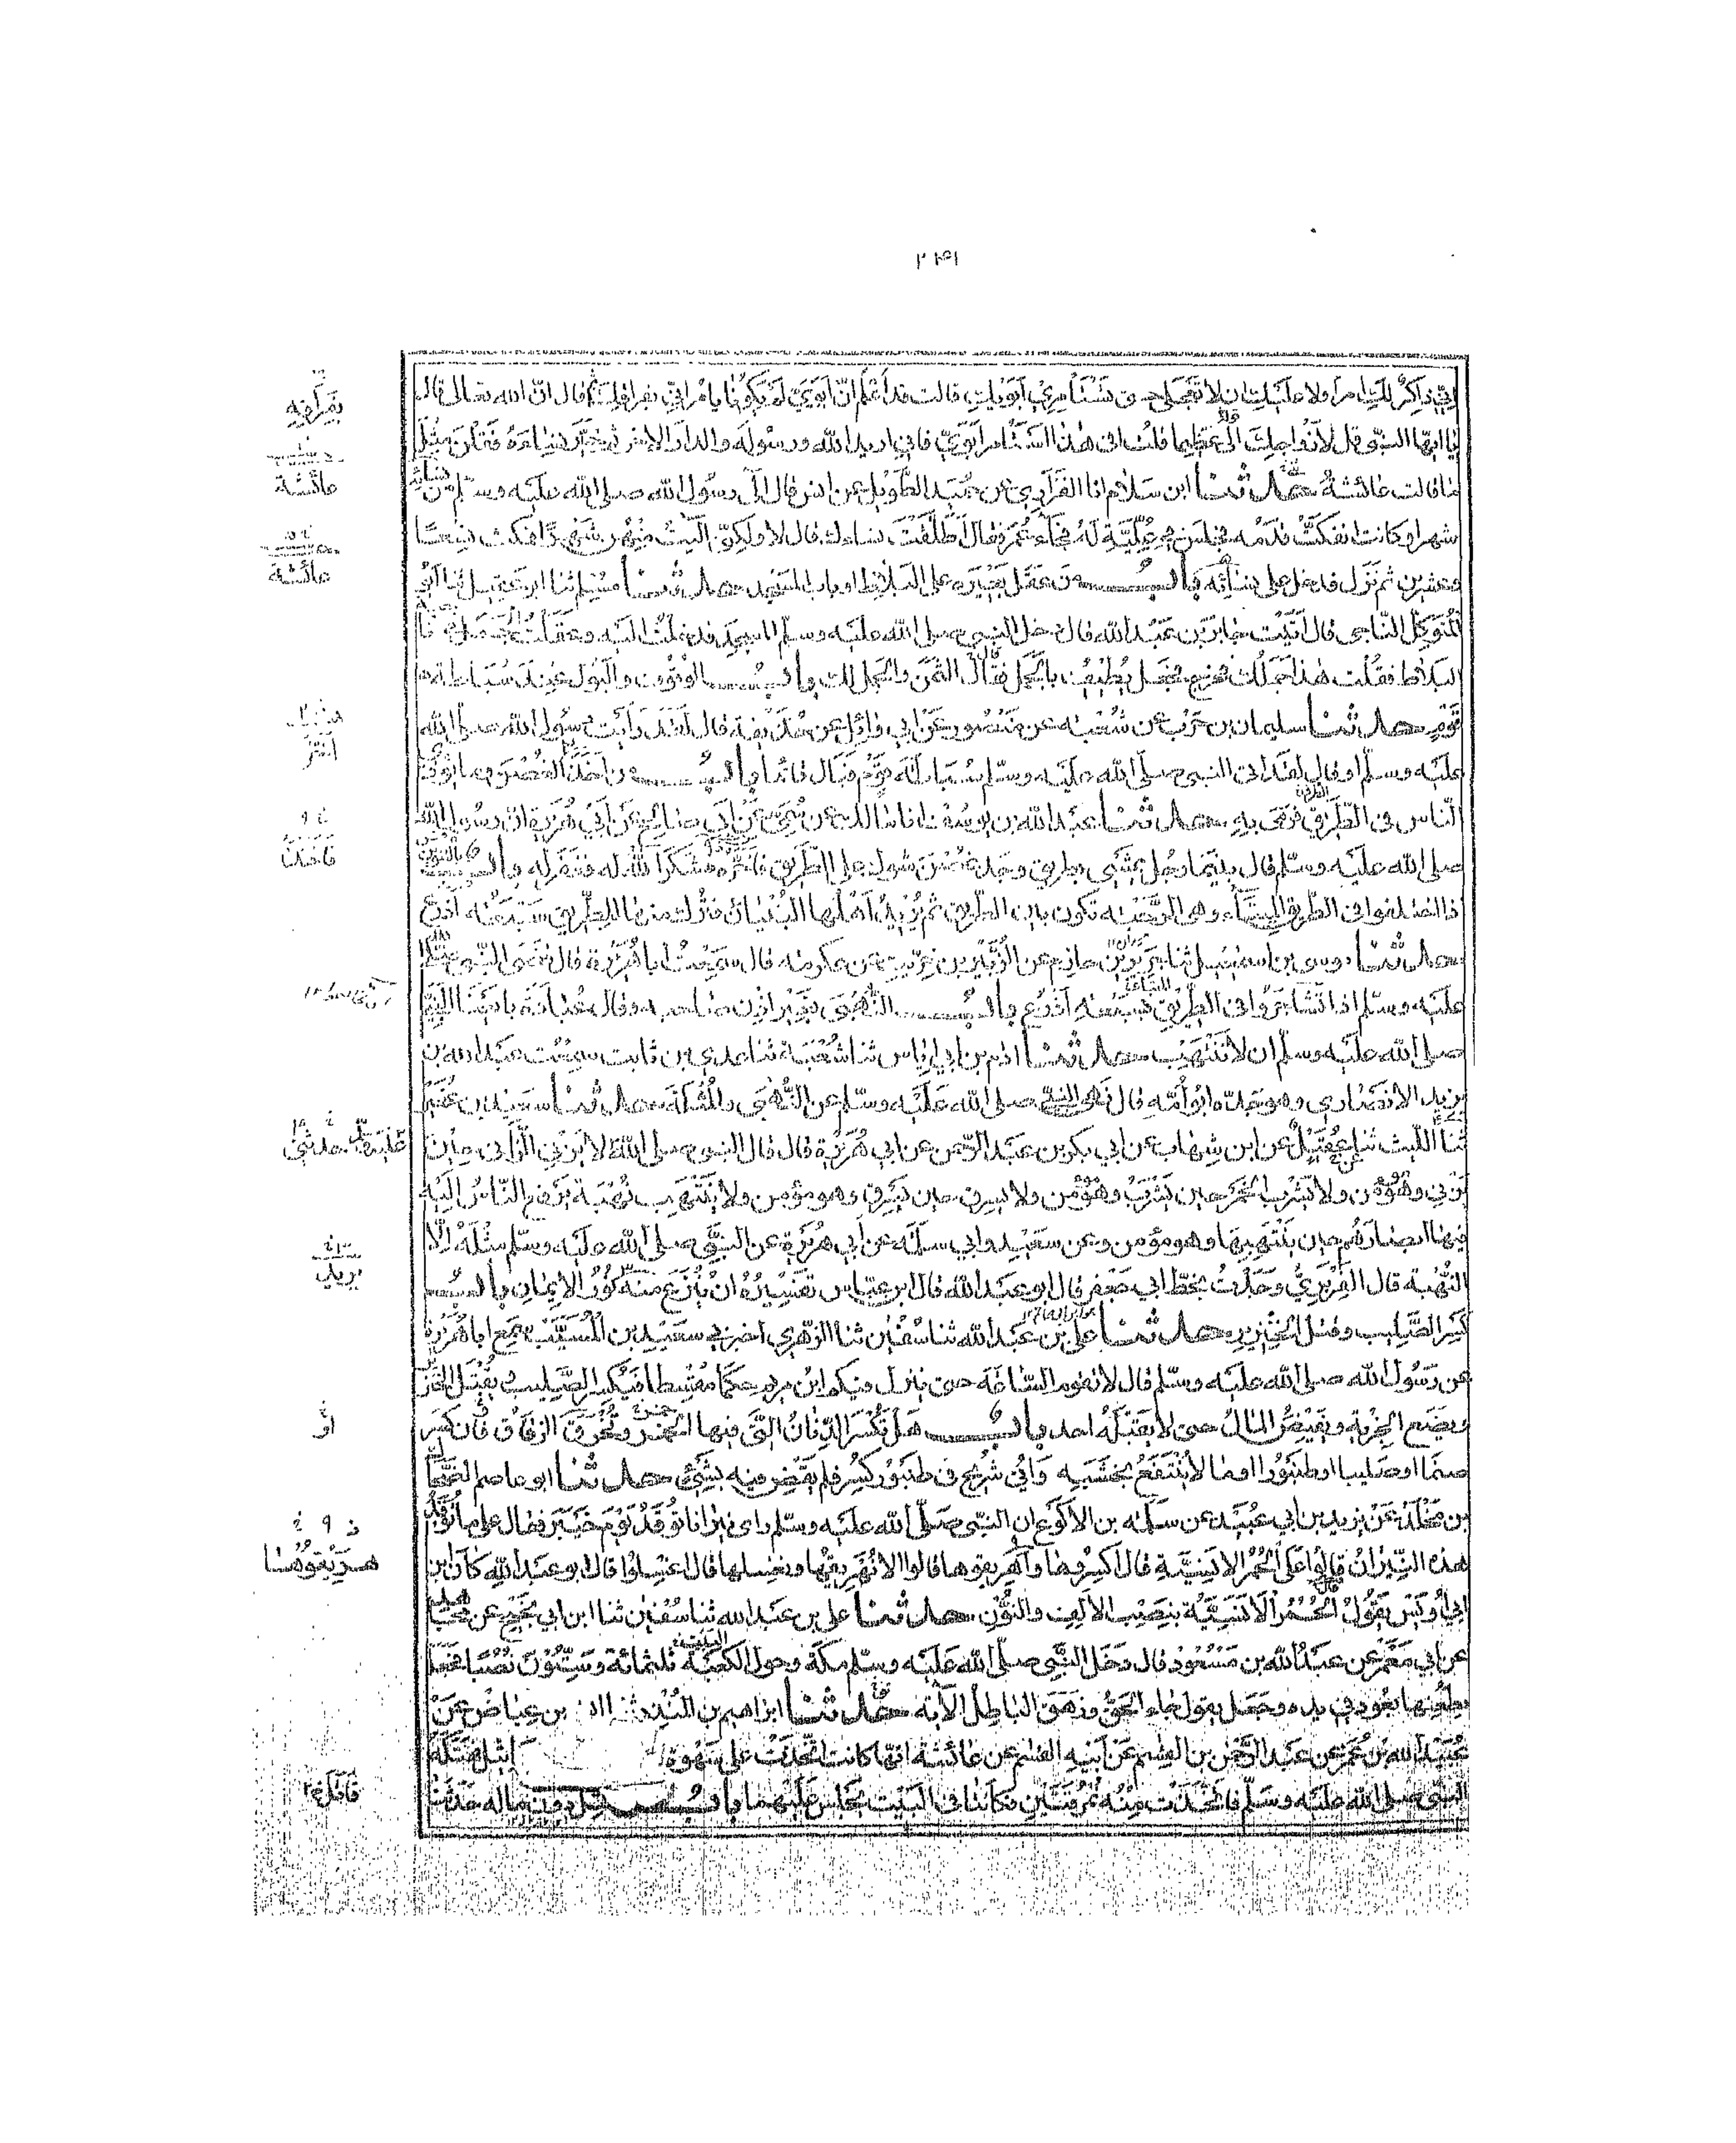 اني ذاكر لك امرا ولا عليك ان لا تعجلي حتى تستأمري ابويك قالت قد اعلم ان ابوي لم يكونا يامراني بفراقك ثم قال ان الله تعالى قال
يا ايها النبي قل لازواجك الى عظيما قلت افي هذا استأمر ابوي فاني اريد الله ورسوله والدار الاخرة ثم خير نساءه فقلن مثل
ما قالت عائشة حدثنا ابن سلام انا الفزاري عن حميد الطويل عن انس قال آلى رسول الله صلى الله عليه وسلم من نسائه
شهرا وكانت انفكت قدمه فجلس في علية له فجاء عمر فقال اطلقت نساءك قال لا ولكني آليت منهن شهرا فمكث تسعا
وعشرين ثم نزل فدخل على نسائه باب من عقل بعيره على البلاط او باب المسجد حدثنا مسلم ثنا ابو عقيل ثنا ابو
المتوكل الناجي قال اتيت جابر بن عبد الله قال دخل النبي صلى الله عليه وسلم المسجد فدخلت اليه وعقلت الجمل في
البلاط فقلت هذا جملك فخرج فجعل يطيف بالجمل فقال الثمن والجمل لك باب الوقوف والبول عند سباطة
قوم حدثنا سليمان بن حرب عن شعبة عن منصور عن ابي وائل عن حذيفة قال لقد رأيت رسول الله صلى الله
عليه وسلم او قال لقد اتى النبي صلى الله عليه وسلم سباطة قوم فبال قائما باب من اخذ الغصن وما يؤذي
الناس في الطريق فرمى به حدثنا عبد الله بن يوسف انا مالك عن سمي عن ابي صالح عن ابي هريرة ان رسول الله
صلى الله عليه وسلم قال بينما رجل يمشي بطريق وجد غصن شوك على الطريق فاخره فشكر الله له فغفر له باب
اذا اختلفوا في الطريق الميتاء وهي الرحبة تكون بين الطريق ثم يريد اهلها البنيان فترك منها للطريق سبعة اذرع
حدثنا موسى بن اسمعيل ثنا جرير بن حازم عن الزبير بن خريت عن عكرمة قال سمعت ابا هريرة قال قضى النبي صلى الله
عليه وسلم اذا تشاجروا في الطريق بسبعة اذرع باب النهبى بغير اذن صاحبه وقال عبادة بايعنا النبي
صلى الله عليه وسلم ان لا ننتهب حدثنا ادم بن ابي اياس ثنا شعبة ثنا عدي بن ثابت سمعت عبد الله بن
يزيد الانصاري وهو جده ابو امه قال نهى النبي صلى الله عليه وسلم عن النهبى والمثلة حدثنا سعيد بن عفير
ثنا الليث ثنا عقيل عن ابن شهاب عن ابي بكر بن عبد الرحمن عن ابي هريرة قال قال النبي صلى الله لا يزني الزاني حين
يزني وهو مؤمن ولا يشرب الخمر حين يشرب وهو مؤمن ولا يسرق حين يسرق وهو مؤمن ولا ينتهب نهبة يرفع الناس اليه
فيها ابصارهم حين ينتهبها وهو مؤمن وعن سعيد وابي سلمة عن ابي هريرة عن النبي صلى الله عليه وسلم مثله الا
النهبة قال الفربري وجدت بخط ابي جعفر قال ابو عبد الله قال ابن عباس تفسيره ان ينزع منه نور الايمان باب
كسر الصليب وقتل الخنزير حدثنا علي بن عبد الله ثنا سفين ثنا الزهري اخبرني سعيد بن المسيب سمع ابا هريرة
عن رسول الله صلى الله عليه وسلم قال لا تقوم الساعة حتى ينزل فيكم ابن مريم حكما مقسطا فيكسر الصليب ويقتل الخنزير
ويضع الجزية ويفيض المال حتى لا يقبله احد باب هل تكسر الدنان التي فيها الخمر وتخرق الزقاق فان كسر
صنما او صليبا او طنبورا او ما لا ينتفع بخشبه واتي شريح في طنبور كسر فلم يقض فيه بشيء حدثنا ابو عاصم الضحاك
بن مخلد عن يزيد بن ابي عبيد عن سلمة بن الاكوع ان النبي صلى الله عليه وسلم راى نيرانا توقد يوم خيبر فقال على ما توقد
هذه النيران قالوا على الحمر الانسية قال اكسروها واهريقوها قالوا الا نهريقها ونغسلها قال اغسلوا قال ابو عبد الله كان ابن
ابي اويس يقول الحمر الانسية بنصب الالف والنون حدثنا علي بن عبد الله ثنا سفين ثنا ابن ابي نجيح عن مجاهد
عن ابي معمر عن عبد الله بن مسعود قال دخل النبي صلى الله عليه وسلم مكة وحول الكعبة ثلثمائة وستون نصبا فجعل
يطعنها بعود في يده وجعل يقول جاء الحق وزهق الباطل الآية حدثنا ابراهيم بن المنذر ثنا بن عياض عن
عبيد الله بن عمر عن عبد الرحمن بن القسم عن ابيه القسم عن عائشة انها كانت اتخذت على سهوة
النبي صلى الله عليه وسلم فاتخذت منه نمرقتين فكانتا في البيت يجلس عليهما باب من قتل دون ماله حدثنا
عائشة
عائشة
فاخذه
او
هريقوها